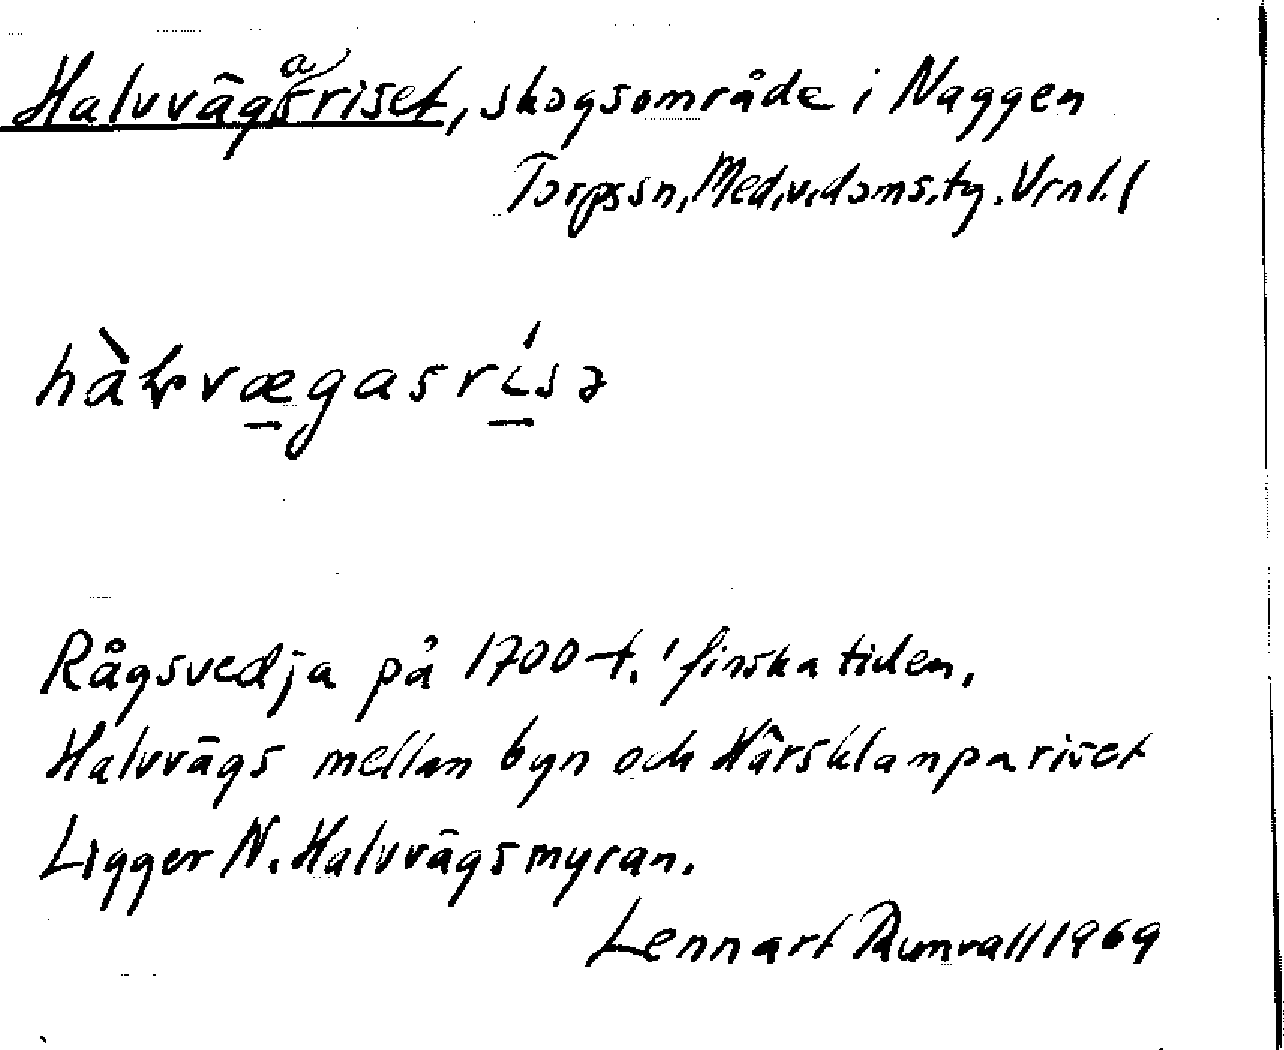 Halvvägasriset, skogsområde i Naggen
Torps sn, Med.v.doms.tg. Vrnl. l
hàlvvægasrísə
Rågsvedja på 1700-t. ' finska tiden,
Halvvägs mellan byn och Närsklamparivet
Ligger N. Halvvägsmyran.
Lennart 1969